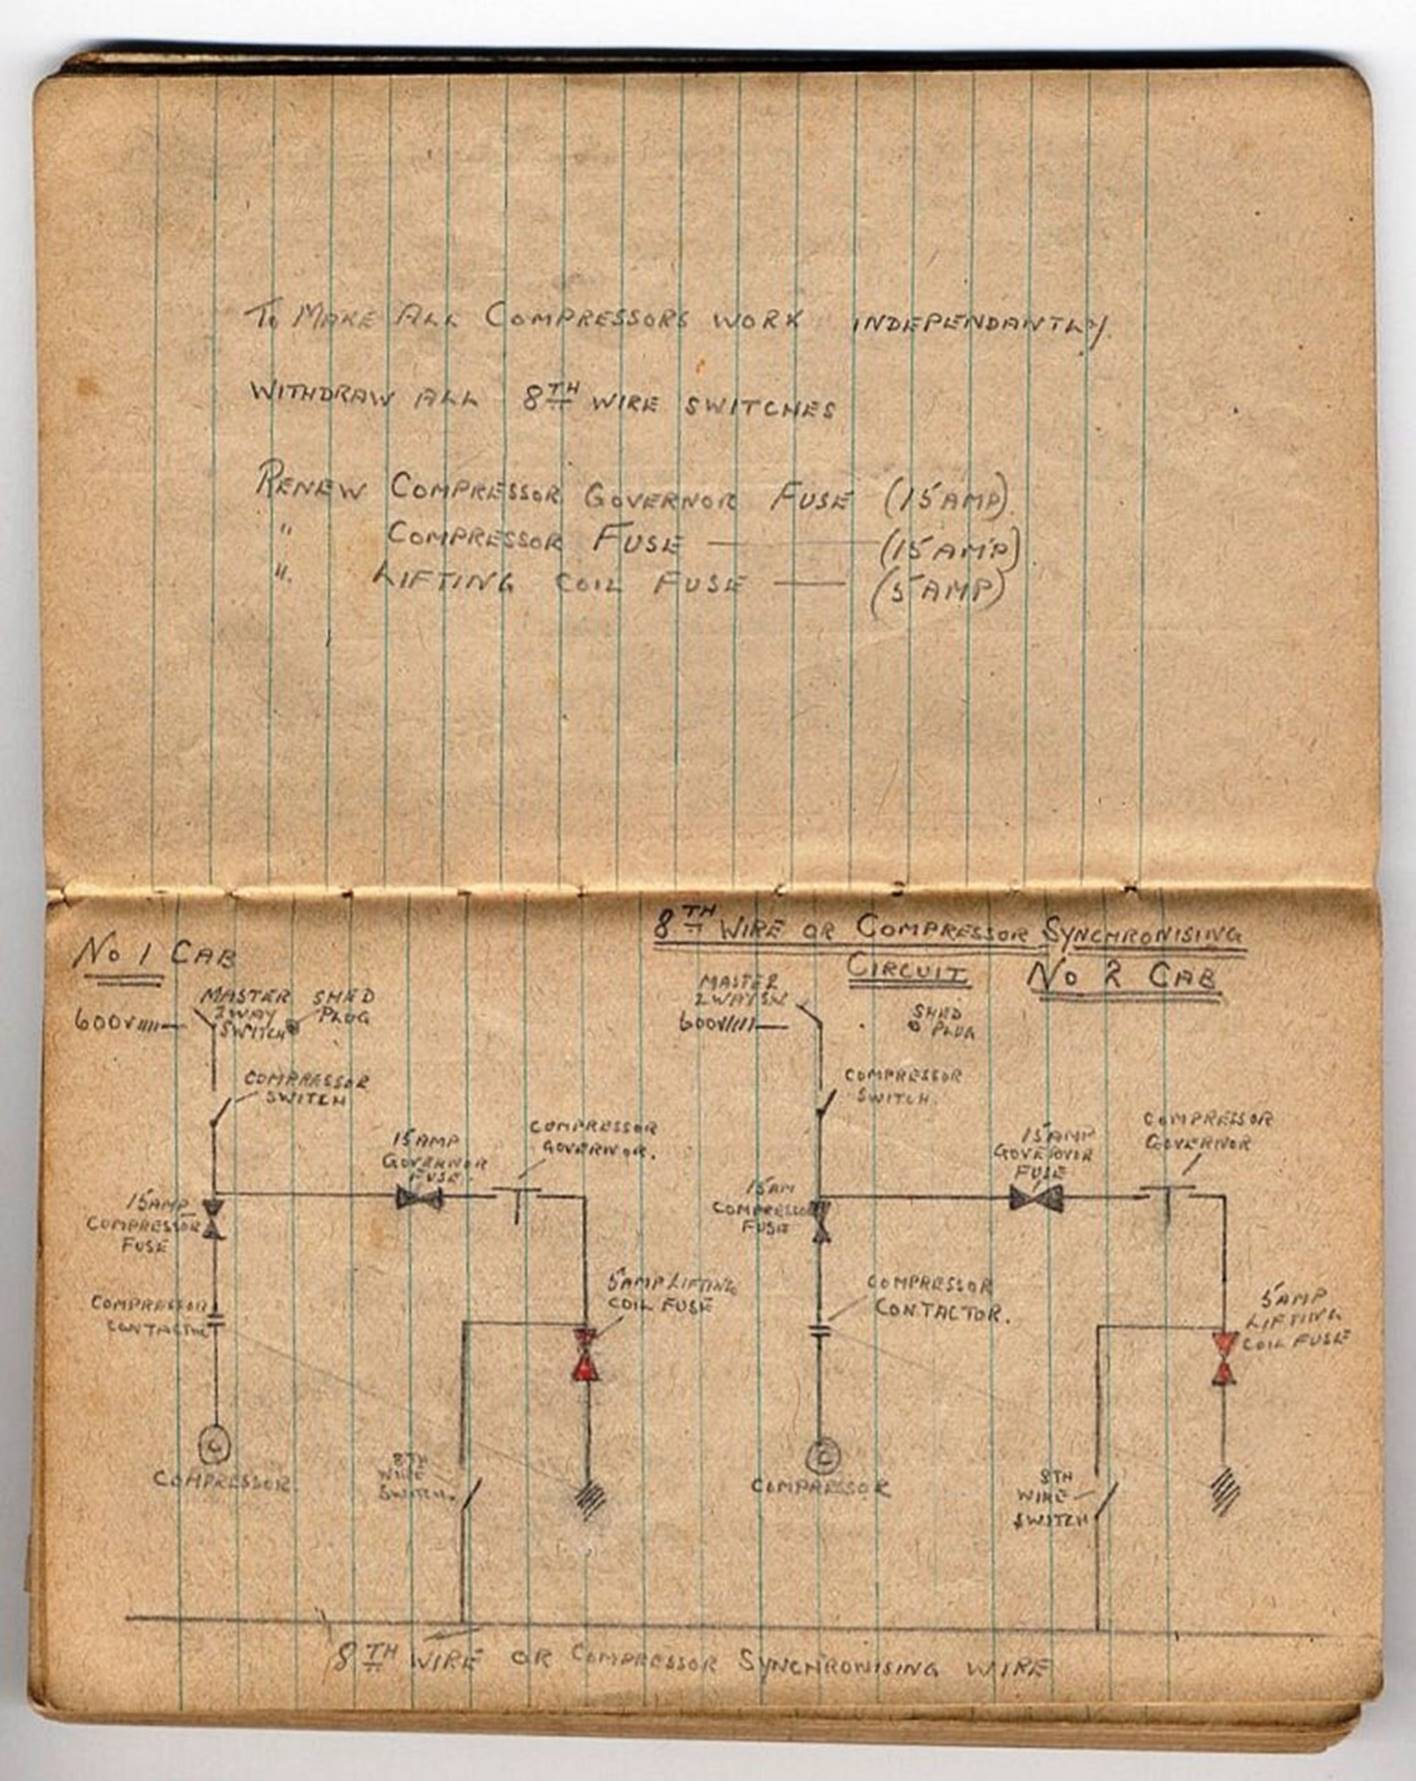 To Make All Compressors work independantly.
Withdraw all 8TH wire switches
Renew Compressor Governor Fuse (15 amp).
" Compressor Fuse — (15 amp)
". Lifting coil Fuse — (5 amp)
8TH Wire or Compressor Synchronising
Circuit
No 1 Cab
No 2 Cab
Master
2way
switch
Shed
Plug
600v
Compressor
Switch
15 amp
Governor
Fuse
Compressor
Governor.
15 amp
Compressor
Fuse
Compressor
Contactor
5 amp Lifting
Coil Fuse
C
Compressor.
8TH
Wire
Switch.
Master
2way Sw
600v
Shed
Plug
Compressor
Switch.
15 amp
Governor
Fuse
Compressor
Governor
15 am
Compressor
Fuse
Compressor
Contactor.
5 amp
Lifting
Coil Fuse
C
Compressor
8TH
Wire
Switch
8TH Wire or Compressor Synchronising Wire